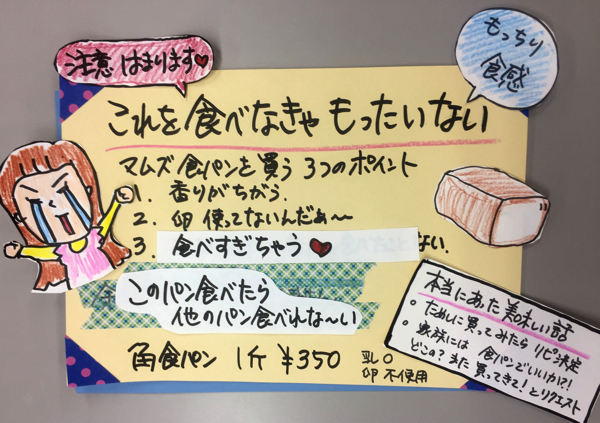 注意 はまります♥
もっちり
食感
これを食べなきゃもったいない
マムズ食パンを買う 3つのポイント
1. 香りがちがう.
2. 卵 使ってないんだぁ〜
3. 食べすぎちゃう♥ ない.
このパン食べたら
他のパン食べれな〜い
角食パン 1斤 ¥350
乳○
卵 不使用
本当にあった美味しい話
・ためしに買ってみたらリピ決定
・家族には 食パンでいいか?!
どこの? また買ってきて!とリクエスト